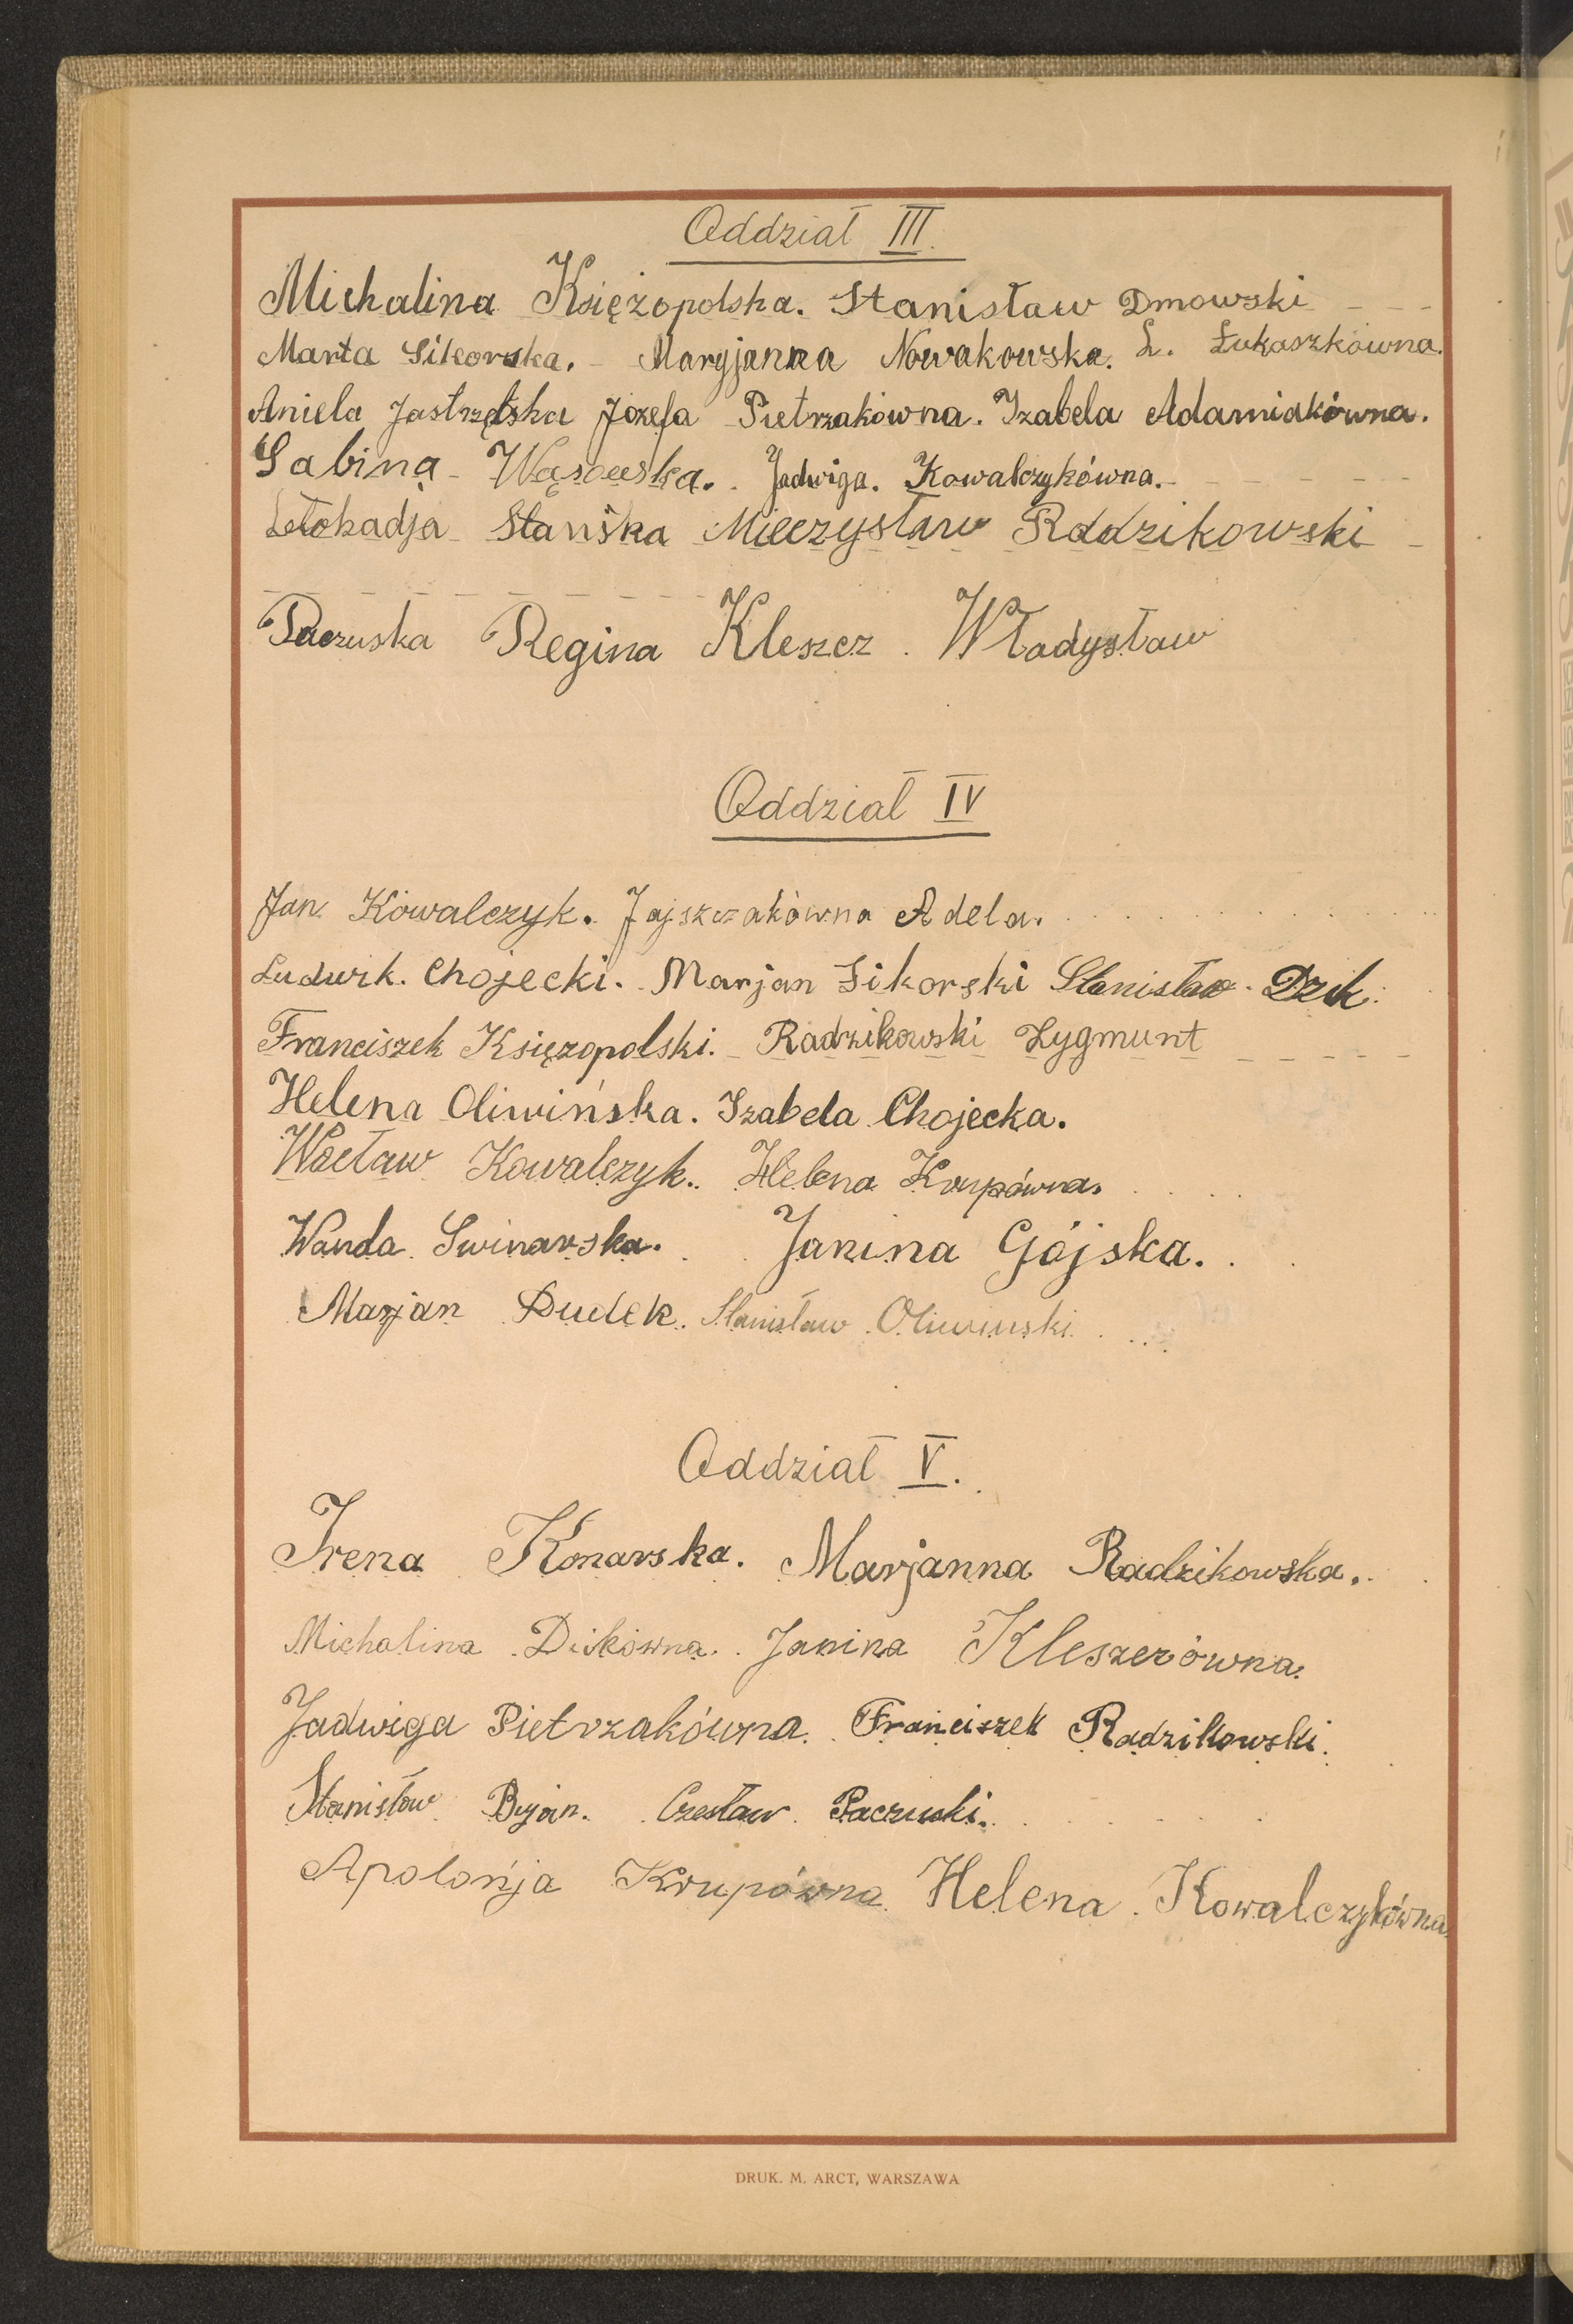 Oddział III.
Michalina Księżopolska. Stanisław Dmowski
Marta Sikorska. Maryjanna Nowakowska. L. Łukaszkówna.
Aniela Jastrzębska Józefa Pietrzakówna. Izabela Adamiakówna.
Sabina Wąsowska. Jadwiga. Kowalczykówna.
Stańska Mieczysław Radzikowski
Paczuska Regina Kleszcz. Władysław
Oddział IV
Jan Kowalczyk. Jajszczakówna Adela.
Ludwik. Chojecki. Marjan Sikorski Stanisław Dzik
Franciszek Księzopolski. Radzikowski Zygmunt
Helena Oliwińska. Izabela Chojecka.
Wacław Kowalczyk. Helena Krupówna.
Wanda Swinarska. Janina Gójska.
Marjan Dudek. Stanisław Oliwinski
Oddział V.
Irena Konarska. Marjanna Radzikowska.
Michalina Janina Kleszczówna.
Jadwiga Pietrzakówna. Franciszek Radzikowski.
Stanisław Bujan. Czesław Paczuski.
Apolonja Krupówna Helena Kowalczykówna
DRUK. M. ARCT, WARSZAWA